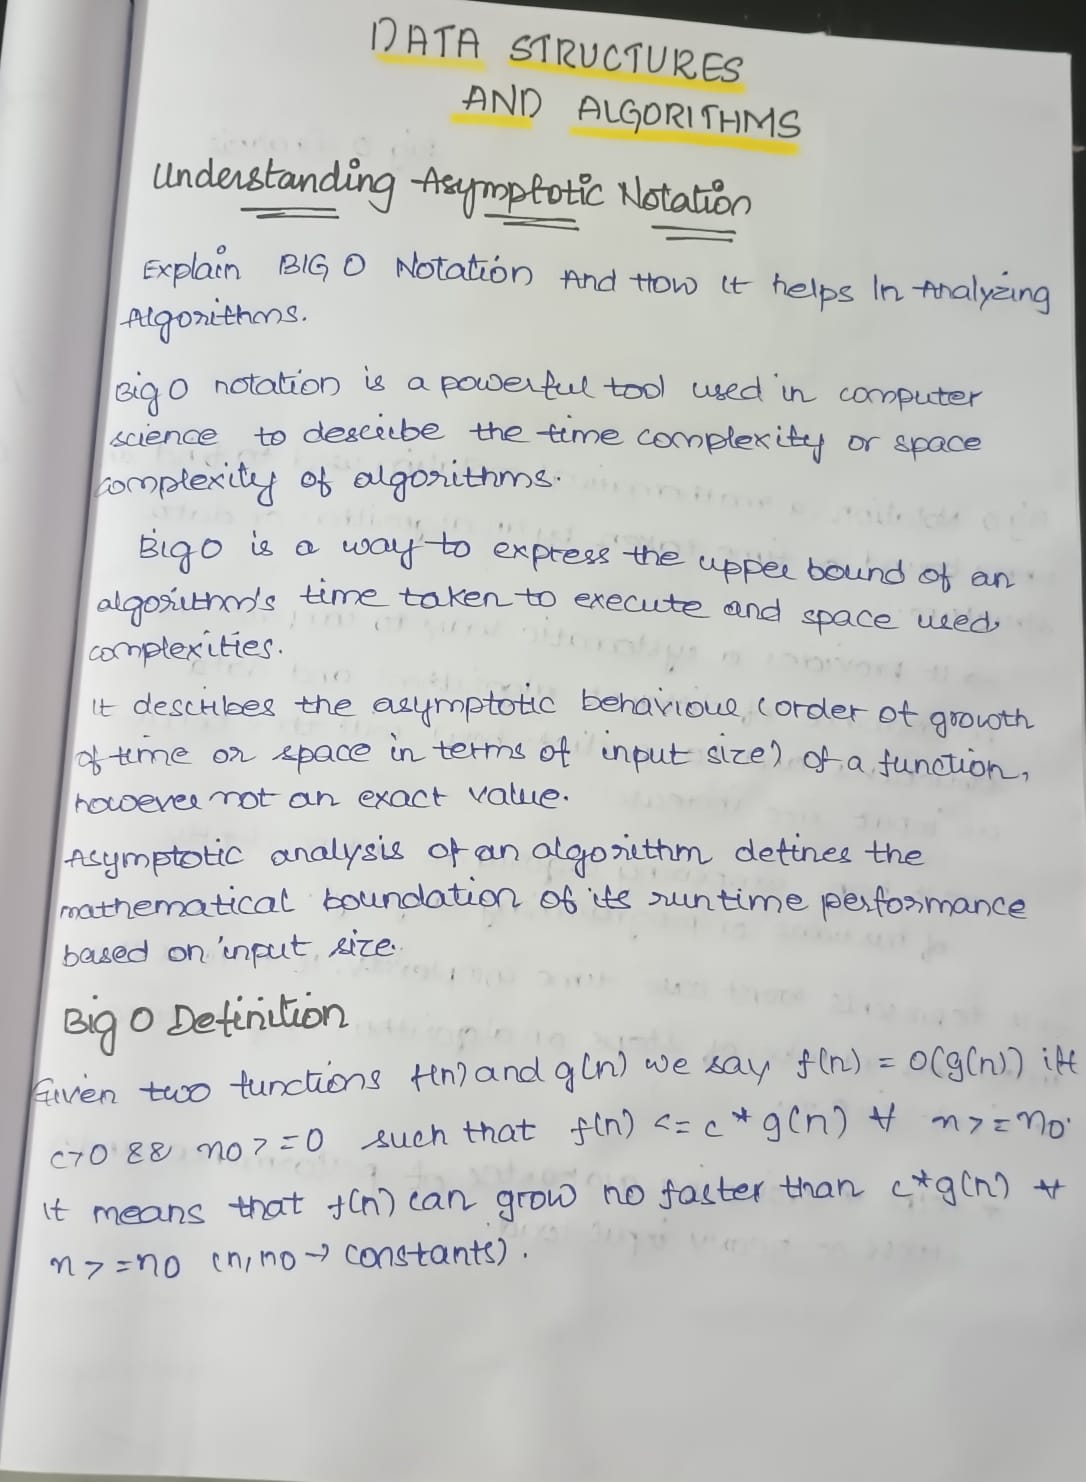 DATA STRUCTURES
AND ALGORITHMS
Understanding Asymptotic Notation
Explain BIG O Notation And How It helps In Analyzing
Algorithms.
Big O notation is a powerful tool used in computer
science to describe the time complexity or space
complexity of algorithms.
Big O is a way to express the upper bound of an
algorithm's time taken to execute and space used
complexities.
It describes the asymptotic behaviour (order of growth
of time or space in terms of input size) of a function,
however not an exact value.
Asymptotic analysis of an algorithm defines the
mathematical boundation of its runtime performance
based on input size.
Big O Definition
Given two functions f(n) and g(n) we say f(n) = O(g(n)) iff
c>0 && n0>=0 such that f(n) <= c*g(n) ∀ n>=n0.
It means that f(n) can grow no faster than c*g(n) ∀
n>=n0 (n, n0 → constants).